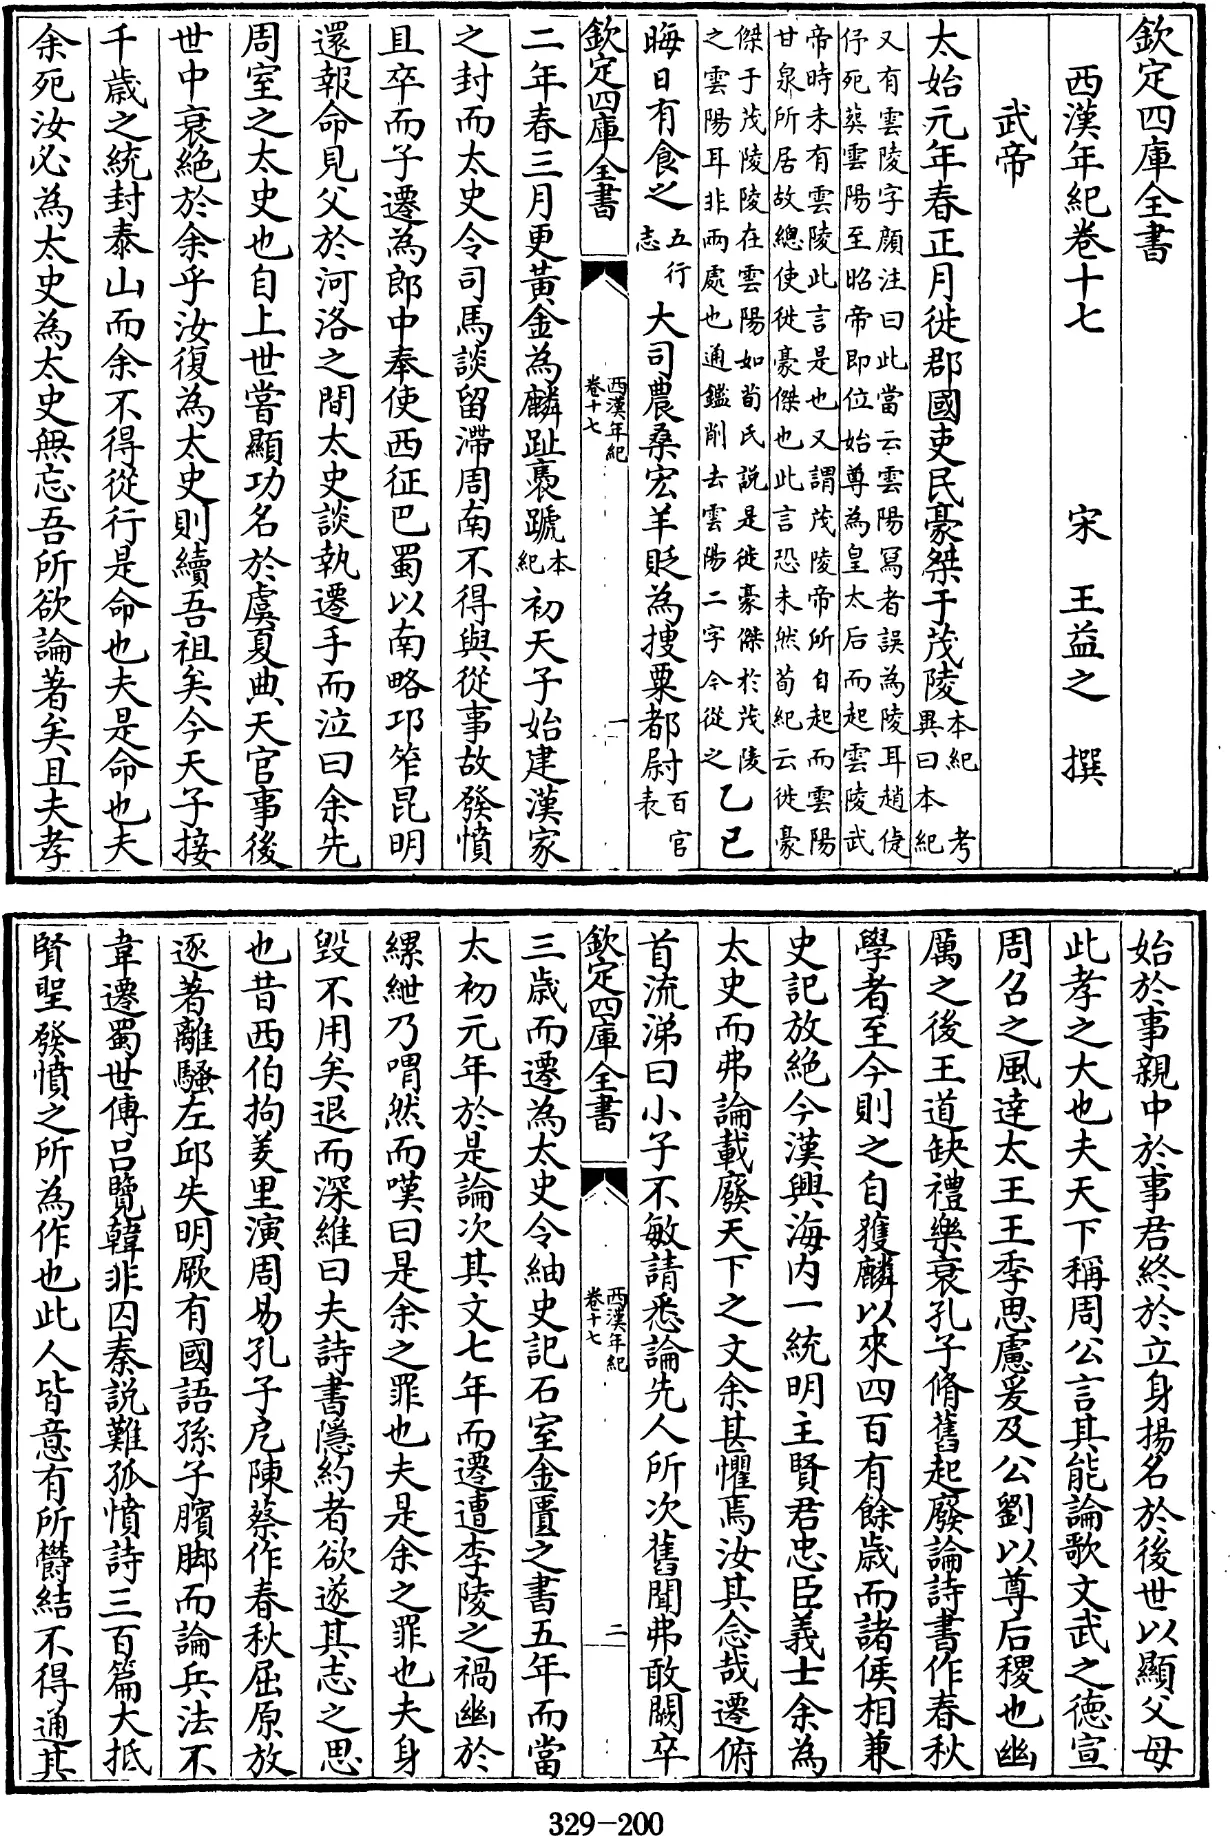 欽定四庫全書
西漢年紀卷十七　宋　王益之　撰
武帝
太始元年春正月徙郡國吏民豪桀于茂陵本紀　考異曰本紀
又有雲陵字顔注曰此當云雲陽冩者誤為陵耳趙倢
伃死葬雲陽至昭帝即位始尊為皇太后而起雲陵武
帝時未有雲陵此言是也又謂茂陵帝所自起而雲陽
甘泉所居故總使徙豪傑也此言恐未然荀紀云徙豪
傑于茂陵陵在雲陽如荀氏説是徙豪傑於茂陵
之雲陽耳非兩處也通鑑削去雲陽二字今從之乙巳
晦日有食之五行志大司農桑宏羊貶為搜粟都尉百官表
欽定四庫全書　西漢年紀卷十七　一
二年春三月更黃金為麟趾褭蹏本紀初天子始建漢家
之封而太史令司馬談留滯周南不得與從事故發憤
且卒而子遷為郎中奉使西征巴蜀以南略邛笮昆明
還報命見父於河洛之間太史談執遷手而泣曰余先
周室之太史也自上世嘗顯功名於虞夏典天官事後
世中衰絶於余乎汝復為太史則續吾祖矣今天子接
千歲之統封泰山而余不得從行是命也夫是命也夫
余死汝必為太史為太史無忘吾所欲論著矣且夫孝
始於事親中於事君終於立身揚名於後世以顯父母
此孝之大也夫天下稱周公言其能論歌文武之德宣
周召之風達太王王季思慮爰及公劉以尊后稷也幽
厲之後王道缺禮樂衰孔子脩舊起廢論詩書作春秋
學者至今則之自獲麟以來四百有餘歲而諸侯相兼
史記放絶今漢興海内一統明主賢君忠臣義士余為
太史而弗論載廢天下之文余甚懼焉汝其念哉遷俯
首流涕曰小子不敏請悉論先人所次舊聞弗敢闕卒
欽定四庫全書　西漢年紀卷十七　二
三歲而遷為太史令紬史記石室金匱之書五年而當
太初元年於是論次其文七年而遷遭李陵之禍幽於
縲紲乃喟然而嘆曰是余之罪也夫是余之罪也夫身
毀不用矣退而深維曰夫詩書隱約者欲遂其志之思
也昔西伯拘羑里演周易孔子戹陳蔡作春秋屈原放
逐著離騷左邱失明厥有國語孫子臏脚而論兵法不
韋遷蜀世傳呂覽韓非囚秦説難孤憤詩三百篇大抵
賢聖發憤之所為作也此人皆意有所鬱結不得通其
329-200